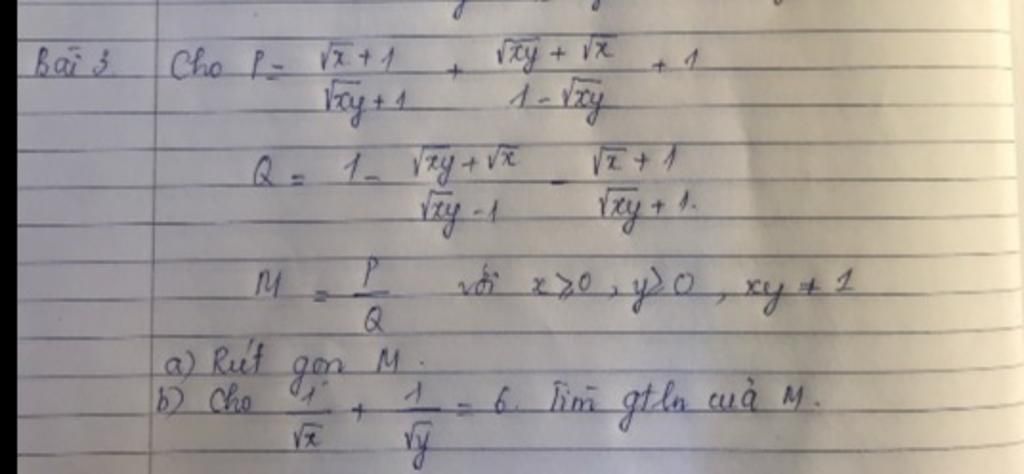 Bài 3 Cho P = (√x + 1)/(√xy + 1) + (√xy + √x)/(1 - √xy) + 1
Q = 1 - (√xy + √x)/(√xy - 1) - (√x + 1)/(√xy + 1).
M = P/Q với x ≥ 0, y ≥ 0, xy ≠ 1
a) Rút gọn M.
b) Cho 1/√x + 1/√y = 6. Tìm gtln của M.